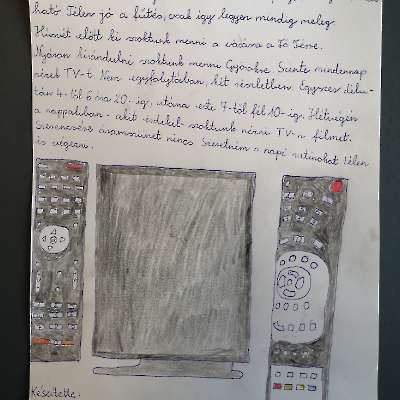 ható Télen jó a fűtés, csak így legyen mindig meleg.
Húsvét előtt ki szoktunk menni a vásárra a Fő Térre.
Nyáron kirándulni szoktunk menni Szinte mindennap
nézek TV-t. Nem egyfolytában, két részletben. Egyszer délu-
tán 4-től 6 óra 20-ig, utána este 7-től fél 10-ig. Hétvégén
a nappaliban - akit érdekel - szoktunk nézni TV-n filmet.
Szerencsére nincs. Szeretném a napi ritmust télen
is
Készítette: